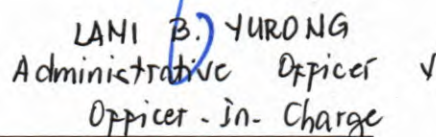 LANI B. YURONG
Administrative Officer V
Officer-in-Charge